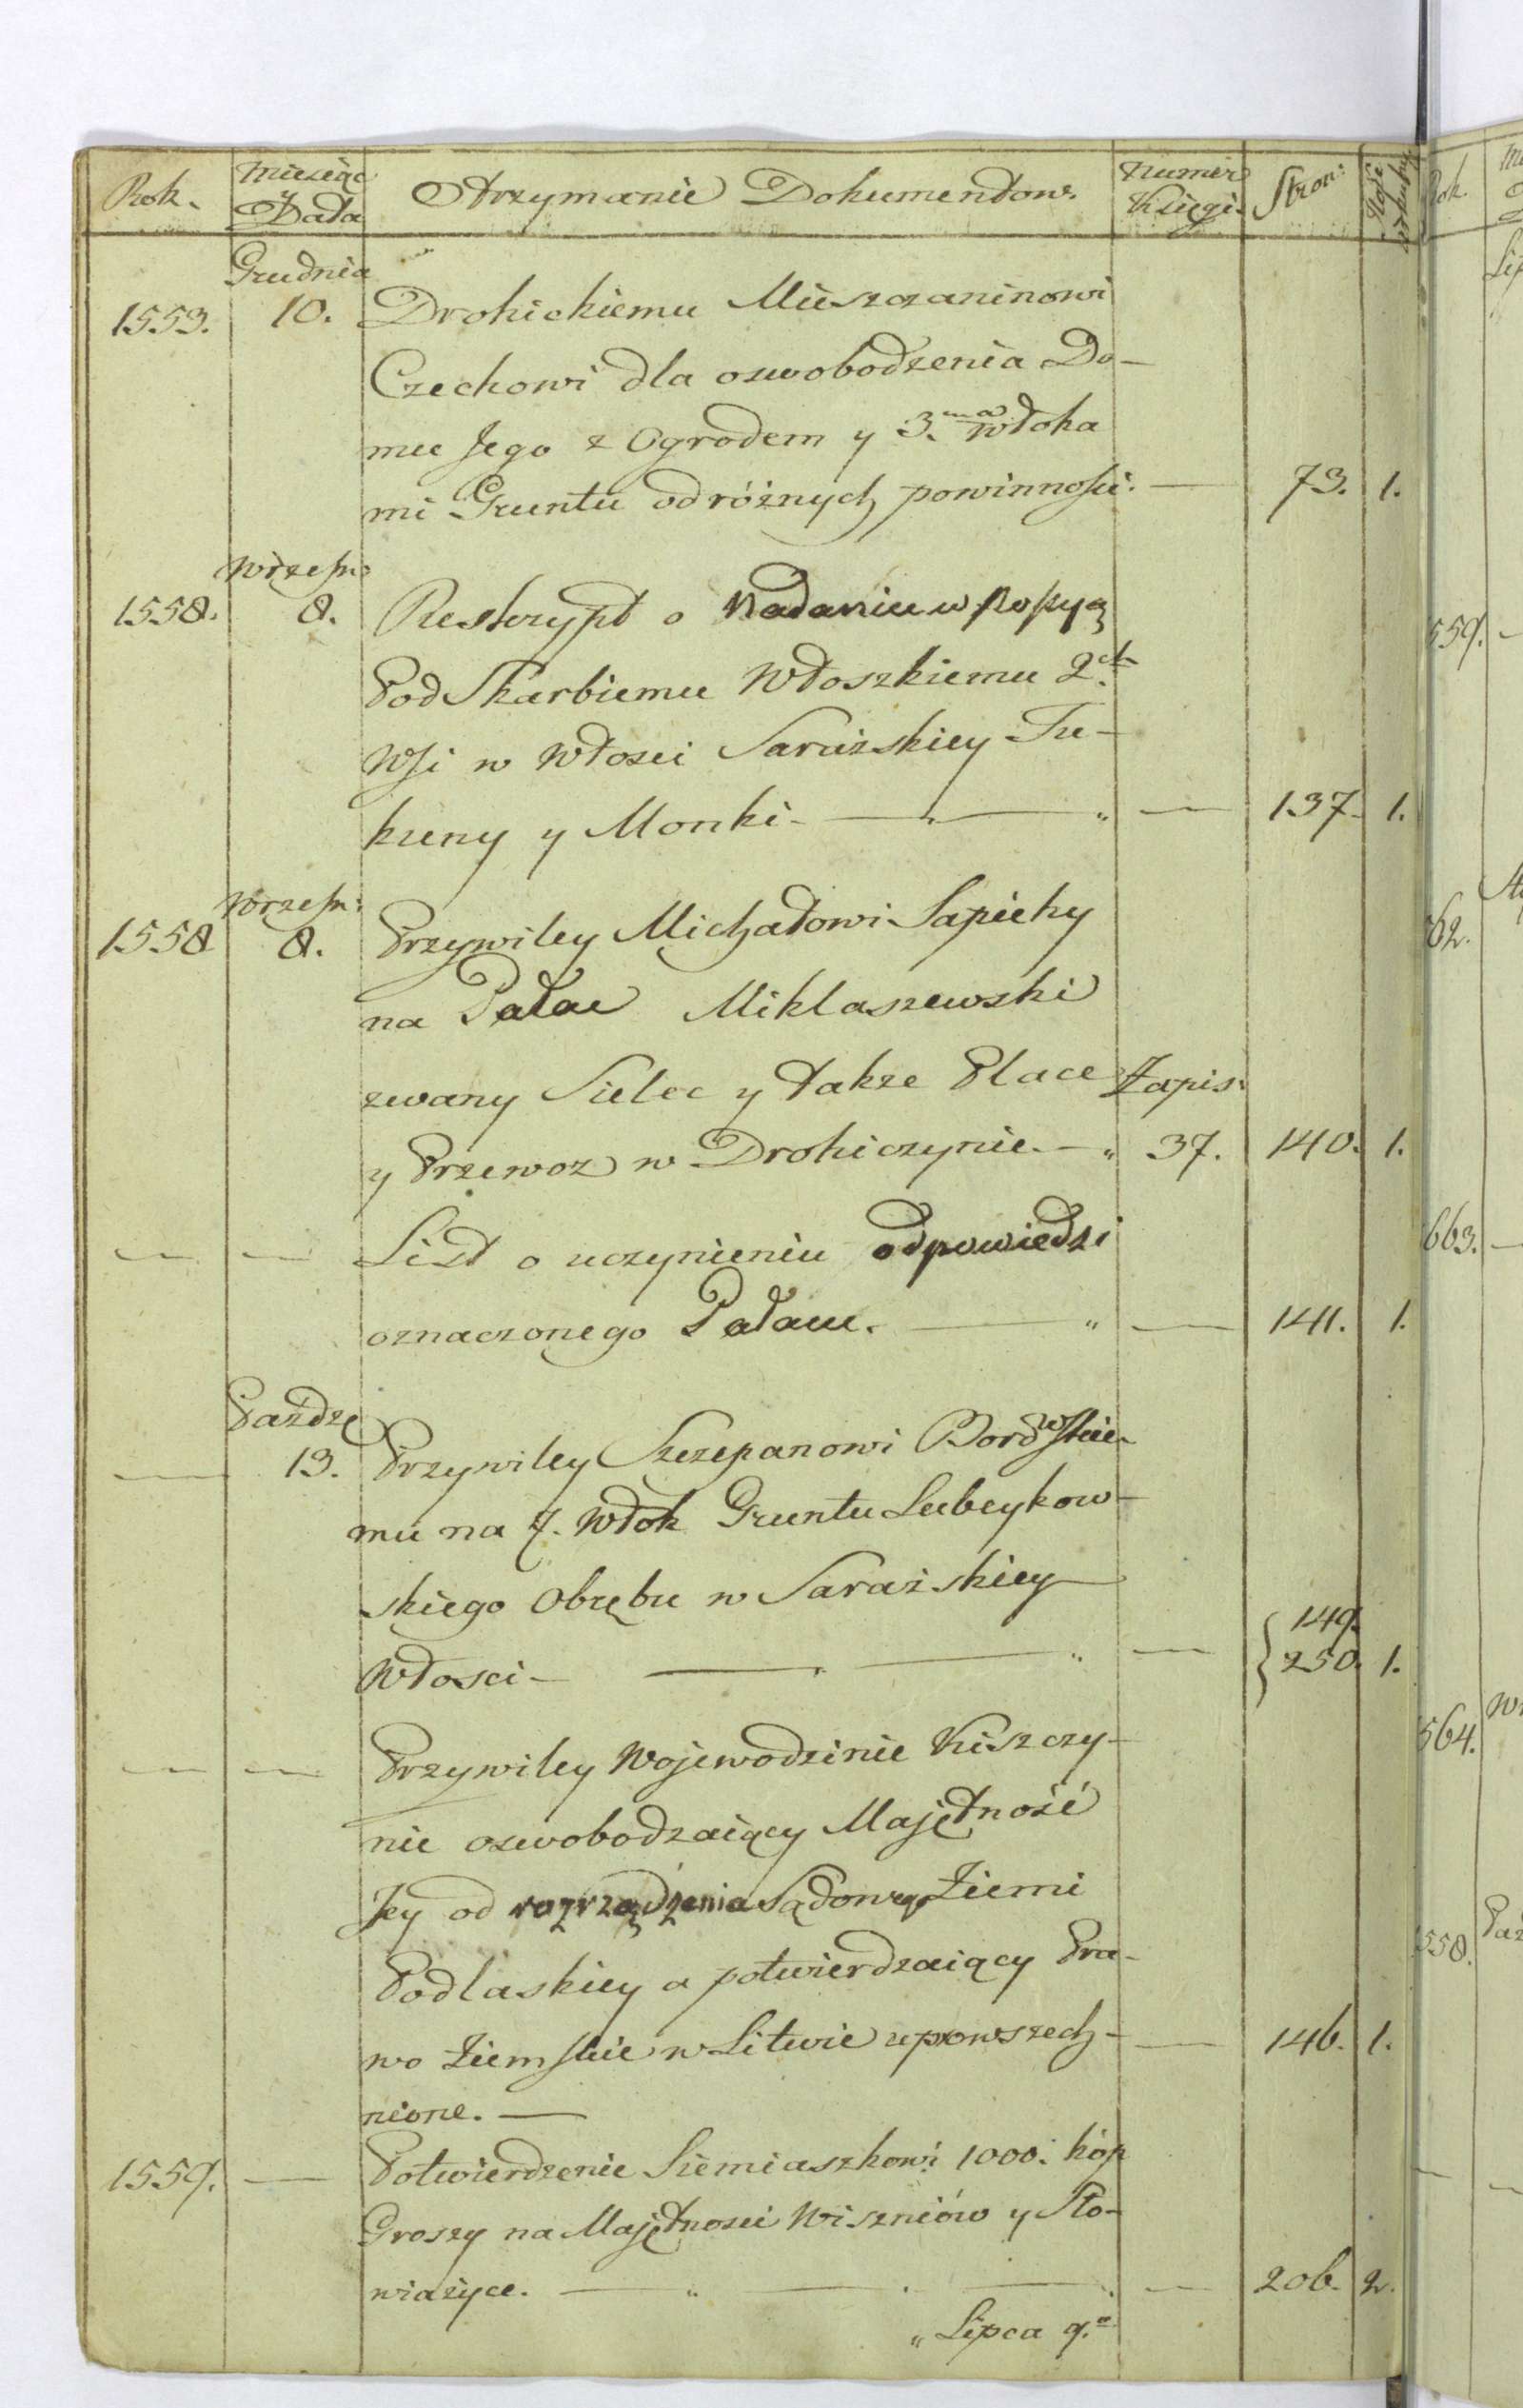 Rok.
Miesiąc
y
Data
Otrzymanie Dokumentow.
Numer
Księgi.
Stron:
Grudnia
1553. 10. Drohickiemu Mieszczaninowi
Czechowi dla oswobodzenia Do-
mu Jego z Ogrodem y 3.ma Włoka
mi Gruntu od różnych powinności. — 73. 1.
Wrześn:
1558. 8. Reskrypt o Nadaniu w
PodSkarbiemu Włoszkiemu 2ch
Wsi w Włosci Sarażskiey Tu-
kuny y Monki — — 137. 1.
Wrześn:
1558 8. Przywiley Michałowi Sapiehy
na Pałac Miklaszewski
zwany Sielec y także Place Zapis:
y Przewoz w Drohiczynie. — 37. 140. 1.
— — List o uczynieniu odpowiedzi
oznaczonego Pałacu. — — 141. 1.
Paźdz
— 13. Przywiley Szczepanowi Bordwskie-
mu na 7. Włok Gruntu Lubeykow-
skiego Obrębu w Sarażskiey
Włosci — — — { 149. 250. 1.
— — Przywiley Wojewodzinie Kiszczy-
nie oswobodzaiący Majętność
Jey od rozrządzenia Sądowego Ziemi
Podlaskiey a potwierdzaiący Pra-
wo Ziemskie w Litwie upowszech- — 146. 1.
nione. —
1559. — Potwierdzenie Siemiaszkowi 1000. kóp
Groszy na Majętnosci Wiszniów y Sło-
wiażyce. — — — 206. 2.
„ Lipca 9.a